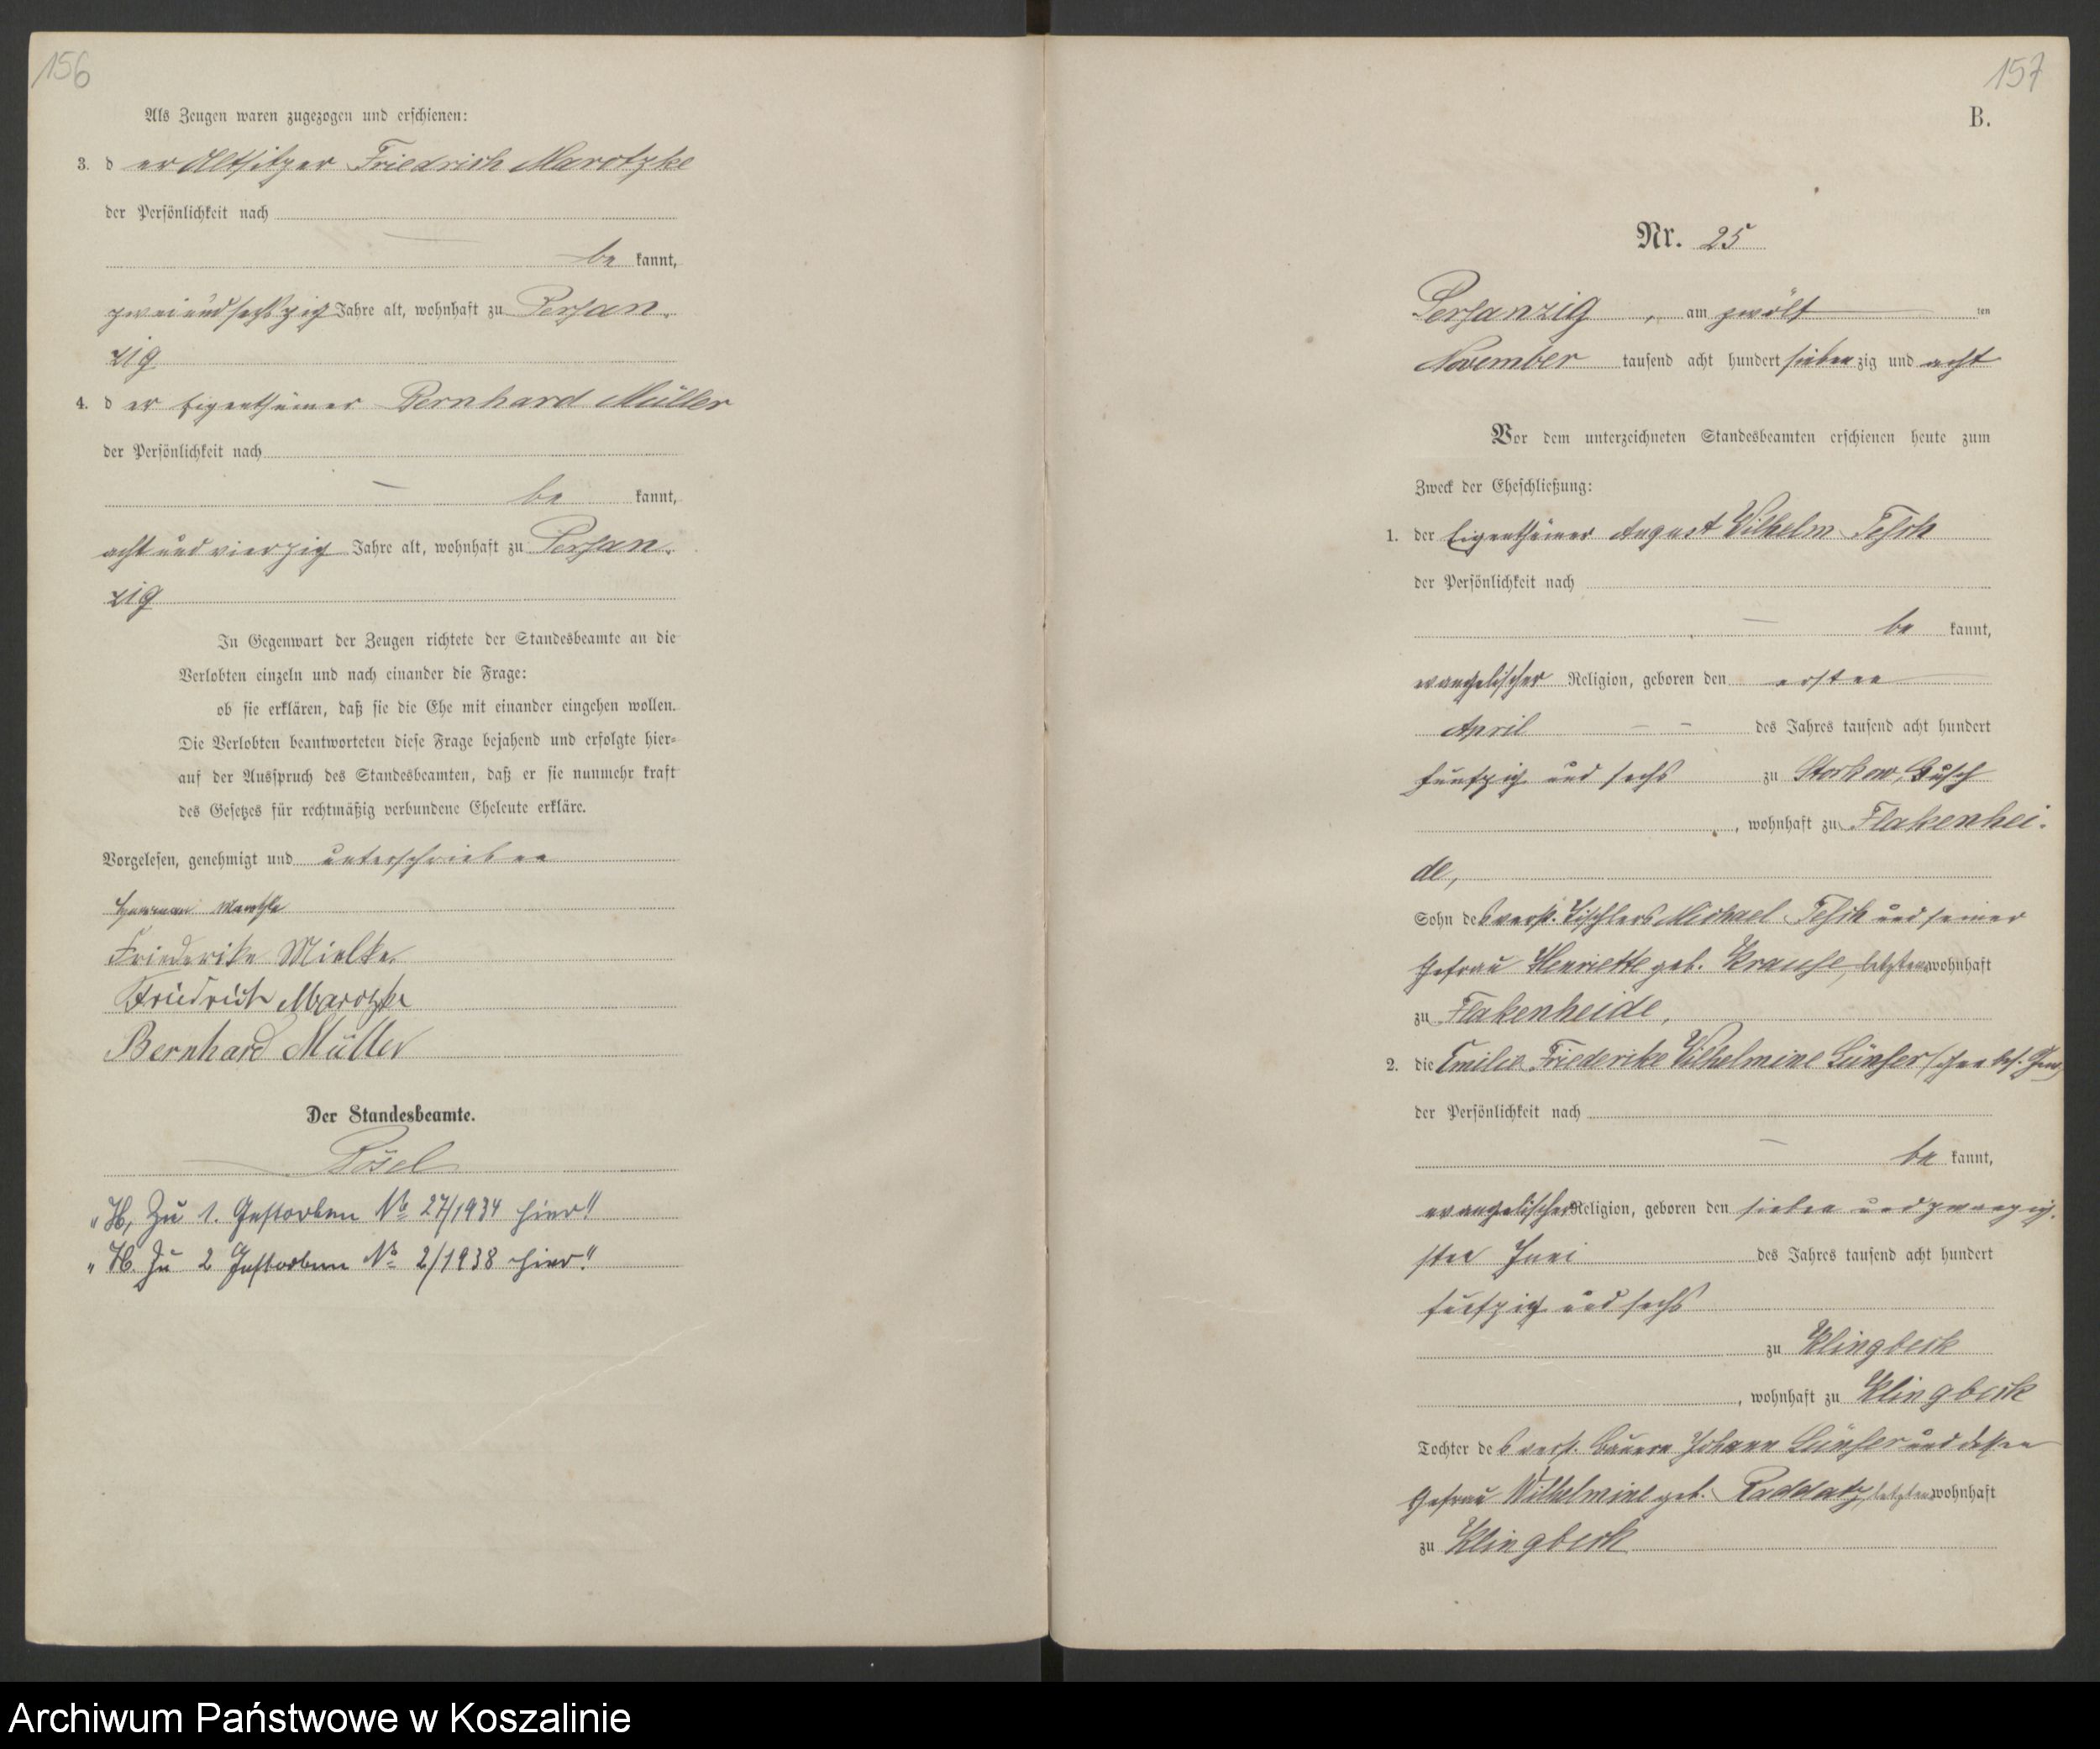 156
Als Zeugen waren zugezogen und erschienen:
3. d er Altsitzer Friedrich Marotzke
der Persönlichkeit nach
be kannt,
zweiundsechszig Jahre alt, wohnhaft zu Persan-
zig
4. d er Eigenthümer Bernhard Müller
der Persönlichkeit nach
be kannt,
achtundvierzig Jahre alt, wohnhaft zu Persan-
zig
In Gegenwart der Zeugen richtete der Standesbeamte an die
Verlobten einzeln und nach einander die Frage:
ob sie erklären, daß sie die Ehe mit einander eingehen wollen.
Die Verlobten beantworteten diese Frage bejahend und erfolgte hier=
auf der Ausspruch des Standesbeamten, daß er sie nunmehr kraft
des Gesetzes für rechtmäßig verbundene Eheleute erkläre.
Vorgelesen, genehmigt und unterschrieben
Herrman Marotzke
Friederike Mielke
Friedrich Marotzke
Bernhard Müller
Der Standesbeamte.
Pösel
"H. Zu 1. Gestorben № 27/1934 hier!"
"H. Zu 2 Gestorben № 2/1938 hier!"
157
B.
Nr. 25
Persanzig, am zwölf ten
November tausend acht hundert siebenzig und acht
Vor dem unterzeichneten Standesbeamten erschienen heute zum
Zweck der Eheschließung:
1. der Eigenthümer August Wilhelm Tesch
der Persönlichkeit nach
be kannt,
evangelischer Religion, geboren den ersten
April des Jahres tausend acht hundert
funfzig und sechs zu Storkow, Busch
, wohnhaft zu Flakenhei-
de,
Sohn des verst. Tischlers Michael Tesch und seiner
Ehefrau Henriette geb. Krause, letztere wohnhaft
zu Flakenheide,
2. die Emilie Friederike Wilhelmine Lünser
der Persönlichkeit nach
be kannt,
evangelischer Religion, geboren den sieben und zwanzig-
sten Juni des Jahres tausend acht hundert
funfzig und sechs
zu Klingbeck
, wohnhaft zu Klingbeck
Tochter des verst. Bauern Johann Lünser und dessen
Ehefrau Wilhelmine geb. Raddatz, letztere wohnhaft
zu Klingbeck
Archiwum Państwowe w Koszalinie